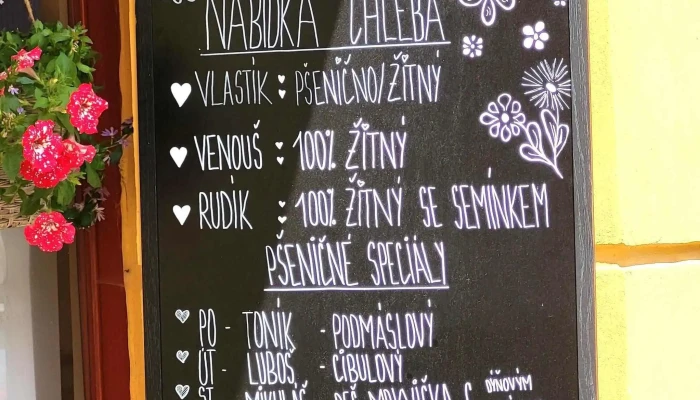 NABÍDKA CHLEBA
VLASTÍK : PŠENIČNO/ŽITNÝ
VENOUŠ : 100% ŽITNÝ
RUDÍK : 100% ŽITNÝ SE SEMÍNKEM
PŠENIČNÉ SPECIÁLY
PO - TONÍK - PODMÁSLOVÝ
ÚT - LUBOŠ - CIBULOVÝ
ST - MIKULÁŠ - S DÝŇOVÝM